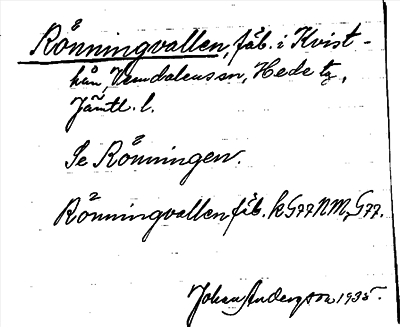 Rönningvallen, fäb. i Kvist-
hån, Vemdalens sn, Hede tg,
Jämtl. l.
Se Rönningen.
Rönningvallen fäb. k G77 NM, G77.
Johan Anderzon 1935.